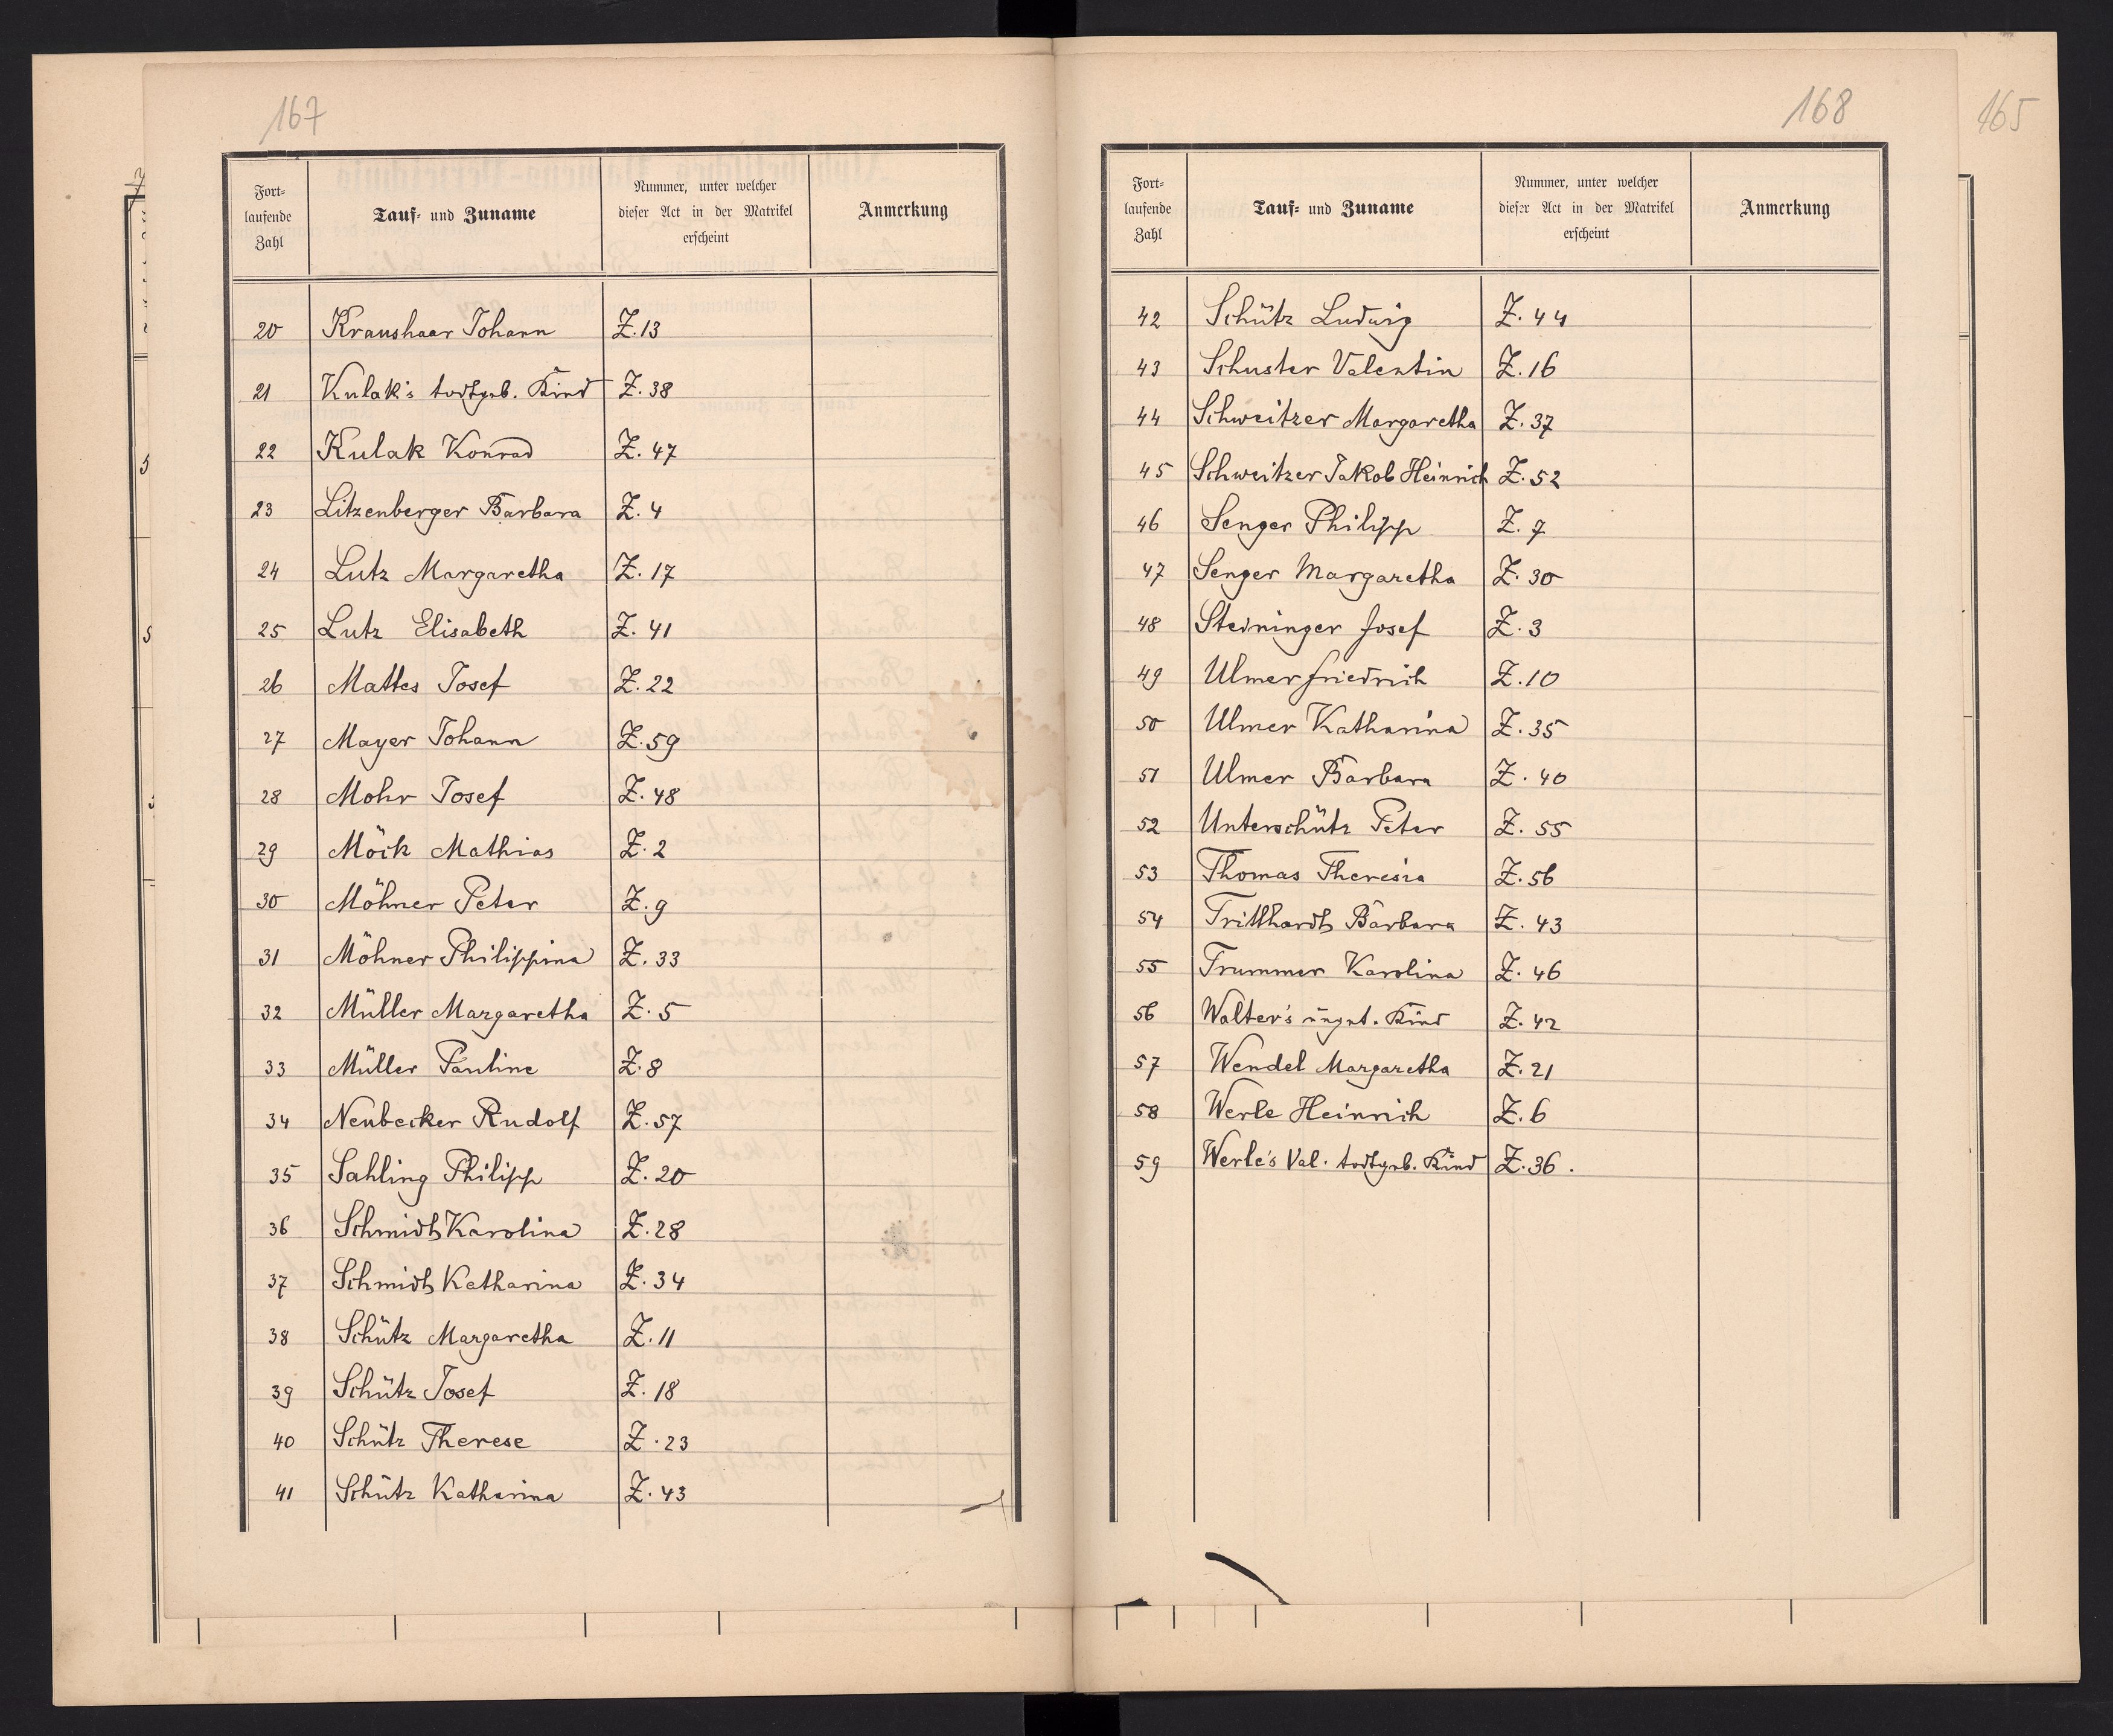 167
Fort-
laufende
Zahl
Tauf- und Zuname
Nummer, unter welcher
dieser Act in der Matrikel
erscheint
Anmerkung
20 Kraushaar Johann Z. 13
21 Kulak's todtgeb. Kind Z. 38
22 Kulak Konrad Z. 47
23 Litzenberger Barbara Z. 4
24 Lutz Margaretha Z. 17
25 Lutz Elisabeth Z. 41
26 Mattes Josef Z. 22
27 Mayer Johann Z. 59
28 Mohr Josef Z. 48
29 Möck Mathias Z. 2
30 Möhner Peter Z. 9
31 Möhner Philippina Z. 33
32 Müller Margaretha Z. 5
33 Müller Pauline Z. 8
34 Neubecker Rudolf Z. 57
35 Sahling Philipp Z. 20
36 Schmidt Karolina Z. 28
37 Schmidt Katharina Z. 34
38 Schütz Margaretha Z. 11
39 Schütz Josef Z. 18
40 Schütz Therese Z. 23
41 Schütz Katharina Z. 43
168
Fort-
laufende
Zahl
Tauf- und Zuname
Nummer, unter welcher
dieser Act in der Matrikel
erscheint
Anmerkung
42 Schütz Ludwig Z. 44
43 Schuster Valentin Z. 16
44 Schweitzer Margaretha Z. 37
45 Schweitzer Jakob Heinrich Z. 52
46 Senger Philipp Z. 7
47 Senger Margaretha Z. 30
48 Steininger Josef Z. 3
49 Ulmer Friedrich Z. 10
50 Ulmer Katharina Z. 35
51 Ulmer Barbara Z. 40
52 Unterschütz Peter Z. 55
53 Thomas Theresia Z. 56
54 Tritthardt Barbara Z. 43
55 Trummer Karolina Z. 46
56 Walter's unget. Kind Z. 42
57 Wendel Margaretha Z. 21
58 Werle Heinrich Z. 6
59 Werle's Val. todtgeb. Kind Z. 36.
165